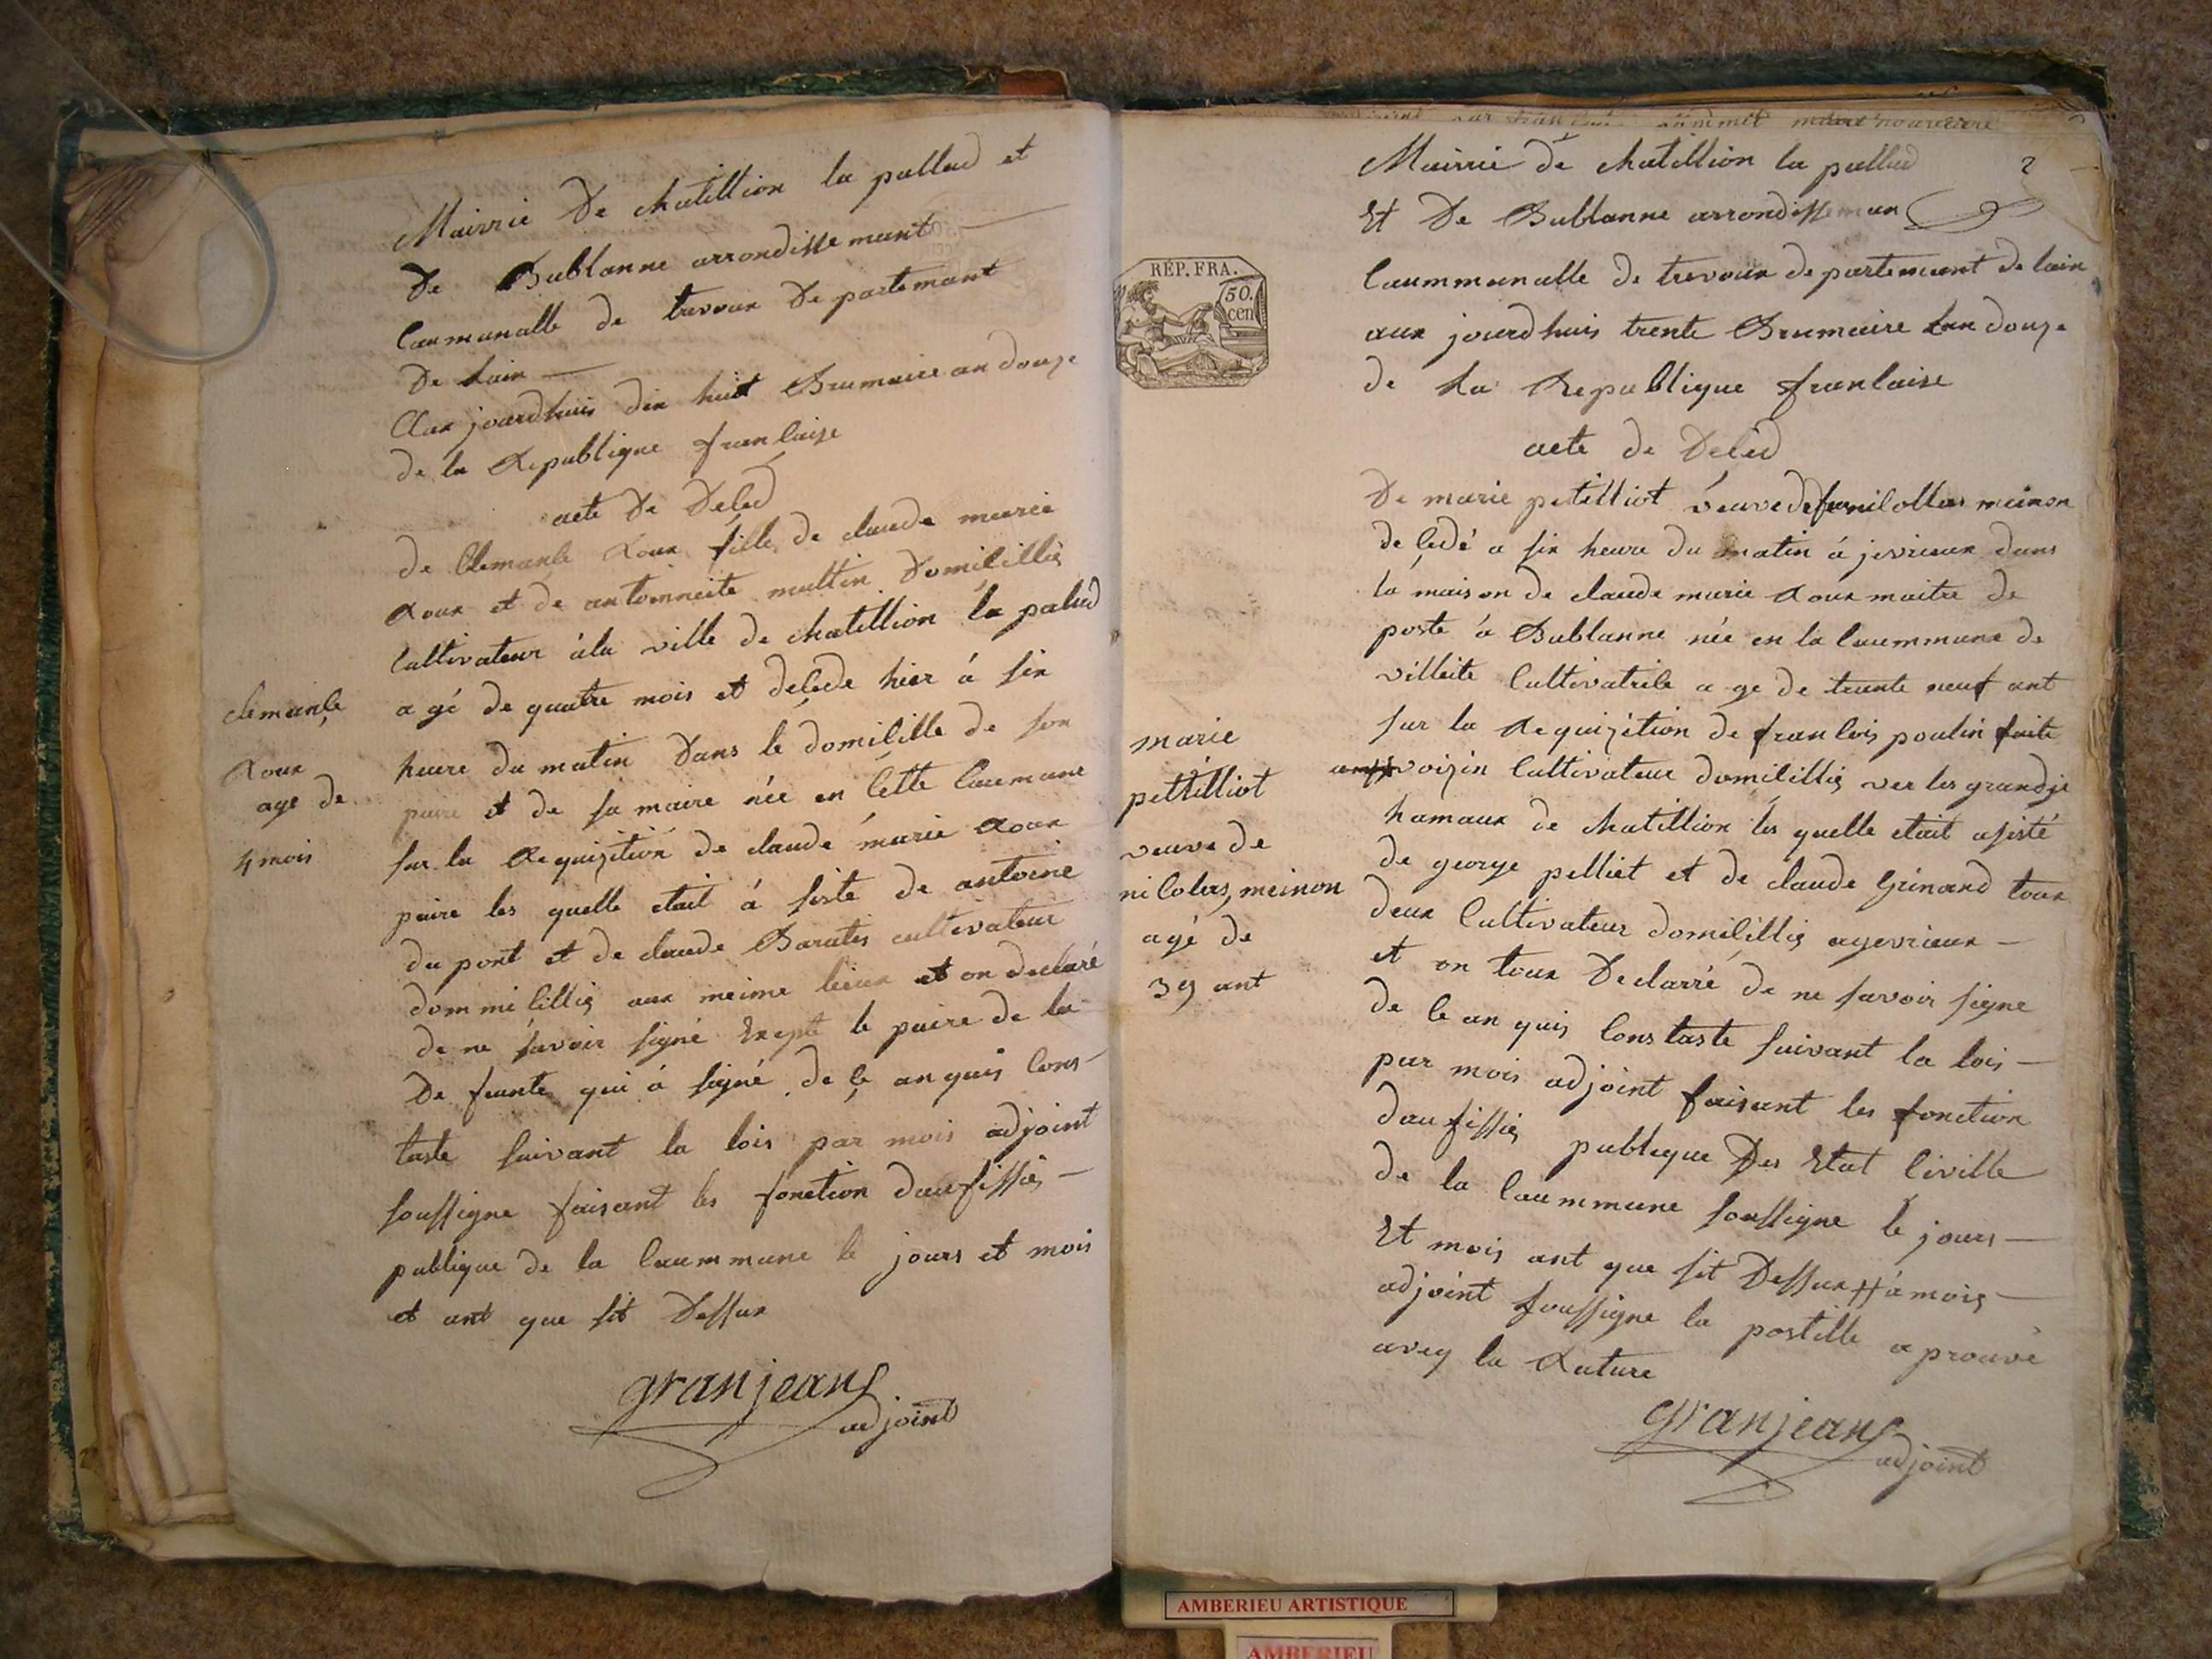 Mairrie De chatillion la pallud et
De Bublanne arrondissemant
Caumunalle de trevoux Departemant
De Lain
Aux jourdhuis dix huit Brumaire an douze
de la Republique francaise
acte De Deced
de Clemance Roux fille de claude marie
Roux et de antoinneite multin Domicillie
Cultivateur à la ville de chatillion la palud
a gé de quatre mois et décede hier à six
heure du matin Dans le domicille de son
paire et de sa maire née en cette Caumune
sur la Requizition de claude marie Roux
paire les quelle etait à siste de antoine
du pont et de claude Baratis cultivateur
dommicillie aux meime lieux et on declaré
de ne savoir signé Exepté le paire de la
De funte qui à signé de ce anquis Cons-
taste suivant la lois par mois adjoint
soussigne faisant les fonction daufissie
publique de la Caummune le jours et mois
et ant que sit Dessux
granjeans
adjoint
clemance
Roux
age de
4 mois
Mairrie de chatillion la pallud
2
Et De Bublanne arrondisseman
Caummunalle de trevoux departemant de lain
aux jourdhuis trente Brumaire Lan douze
de La Republique francaise
acte de Deced
De marie petilliot veuve de funicollas meinon
de cedé a six heure du matin à jevrieux dans
la maison de claude marie Roux maitre de
poste à Bublanne née en la Caummune de
villeite Cultivatrice a ge de trante neuf ant
sur la Requizition de francois poulin faite
voizin Cultivateur domicillie ver les grandje
hamaux de chatillion les quelle etait asisté
de george pelliet et de claude Grinand toux
deux Cultivateur domicillie agevrieux
et on toux Declarré de ne savoir signe
de ce an quis Constaste suivant la lois
par mois adjoint faisant les fonction
daufissie publique Des Etat Civille
de la Caummune soussigne le jours
Et mois ant que sit Dessux à mois
adjoint soussigne la postille a prouvé
avey la Rature
granjeans
adjoint
RÉP. FRA.
50.
cen
marie
pettilliot
veuve de
nicolas, meinon
agé de
39 ant
AMBERIEU ARTISTIQUE
AMBERIEU